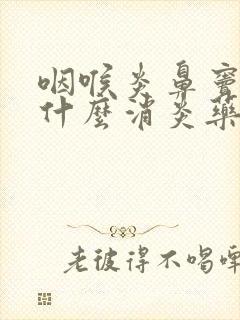 咽喉炎鼻竇
什麼消炎藥
老彼得不喝啤